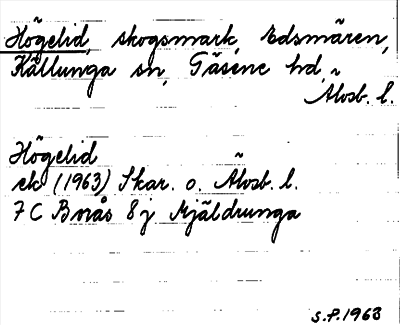 Högelid, skogsmark, Edsmären,
Källunga sn, Gäsene hd,
Älvsb. l.
Högelid
ek (1963) Skar. o. Älvsb. l.
7 C Borås 8 j Mjäldrunga
S.P. 1963